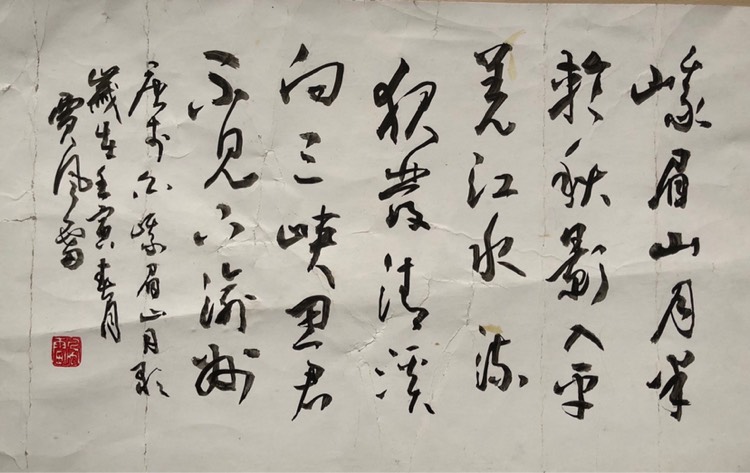 峨眉山月半
輪秋影入平
羌江水流
夜發清溪
向三峡思君
不見下渝州
唐李白峨眉山月歌
歲在壬寅春月
賈風